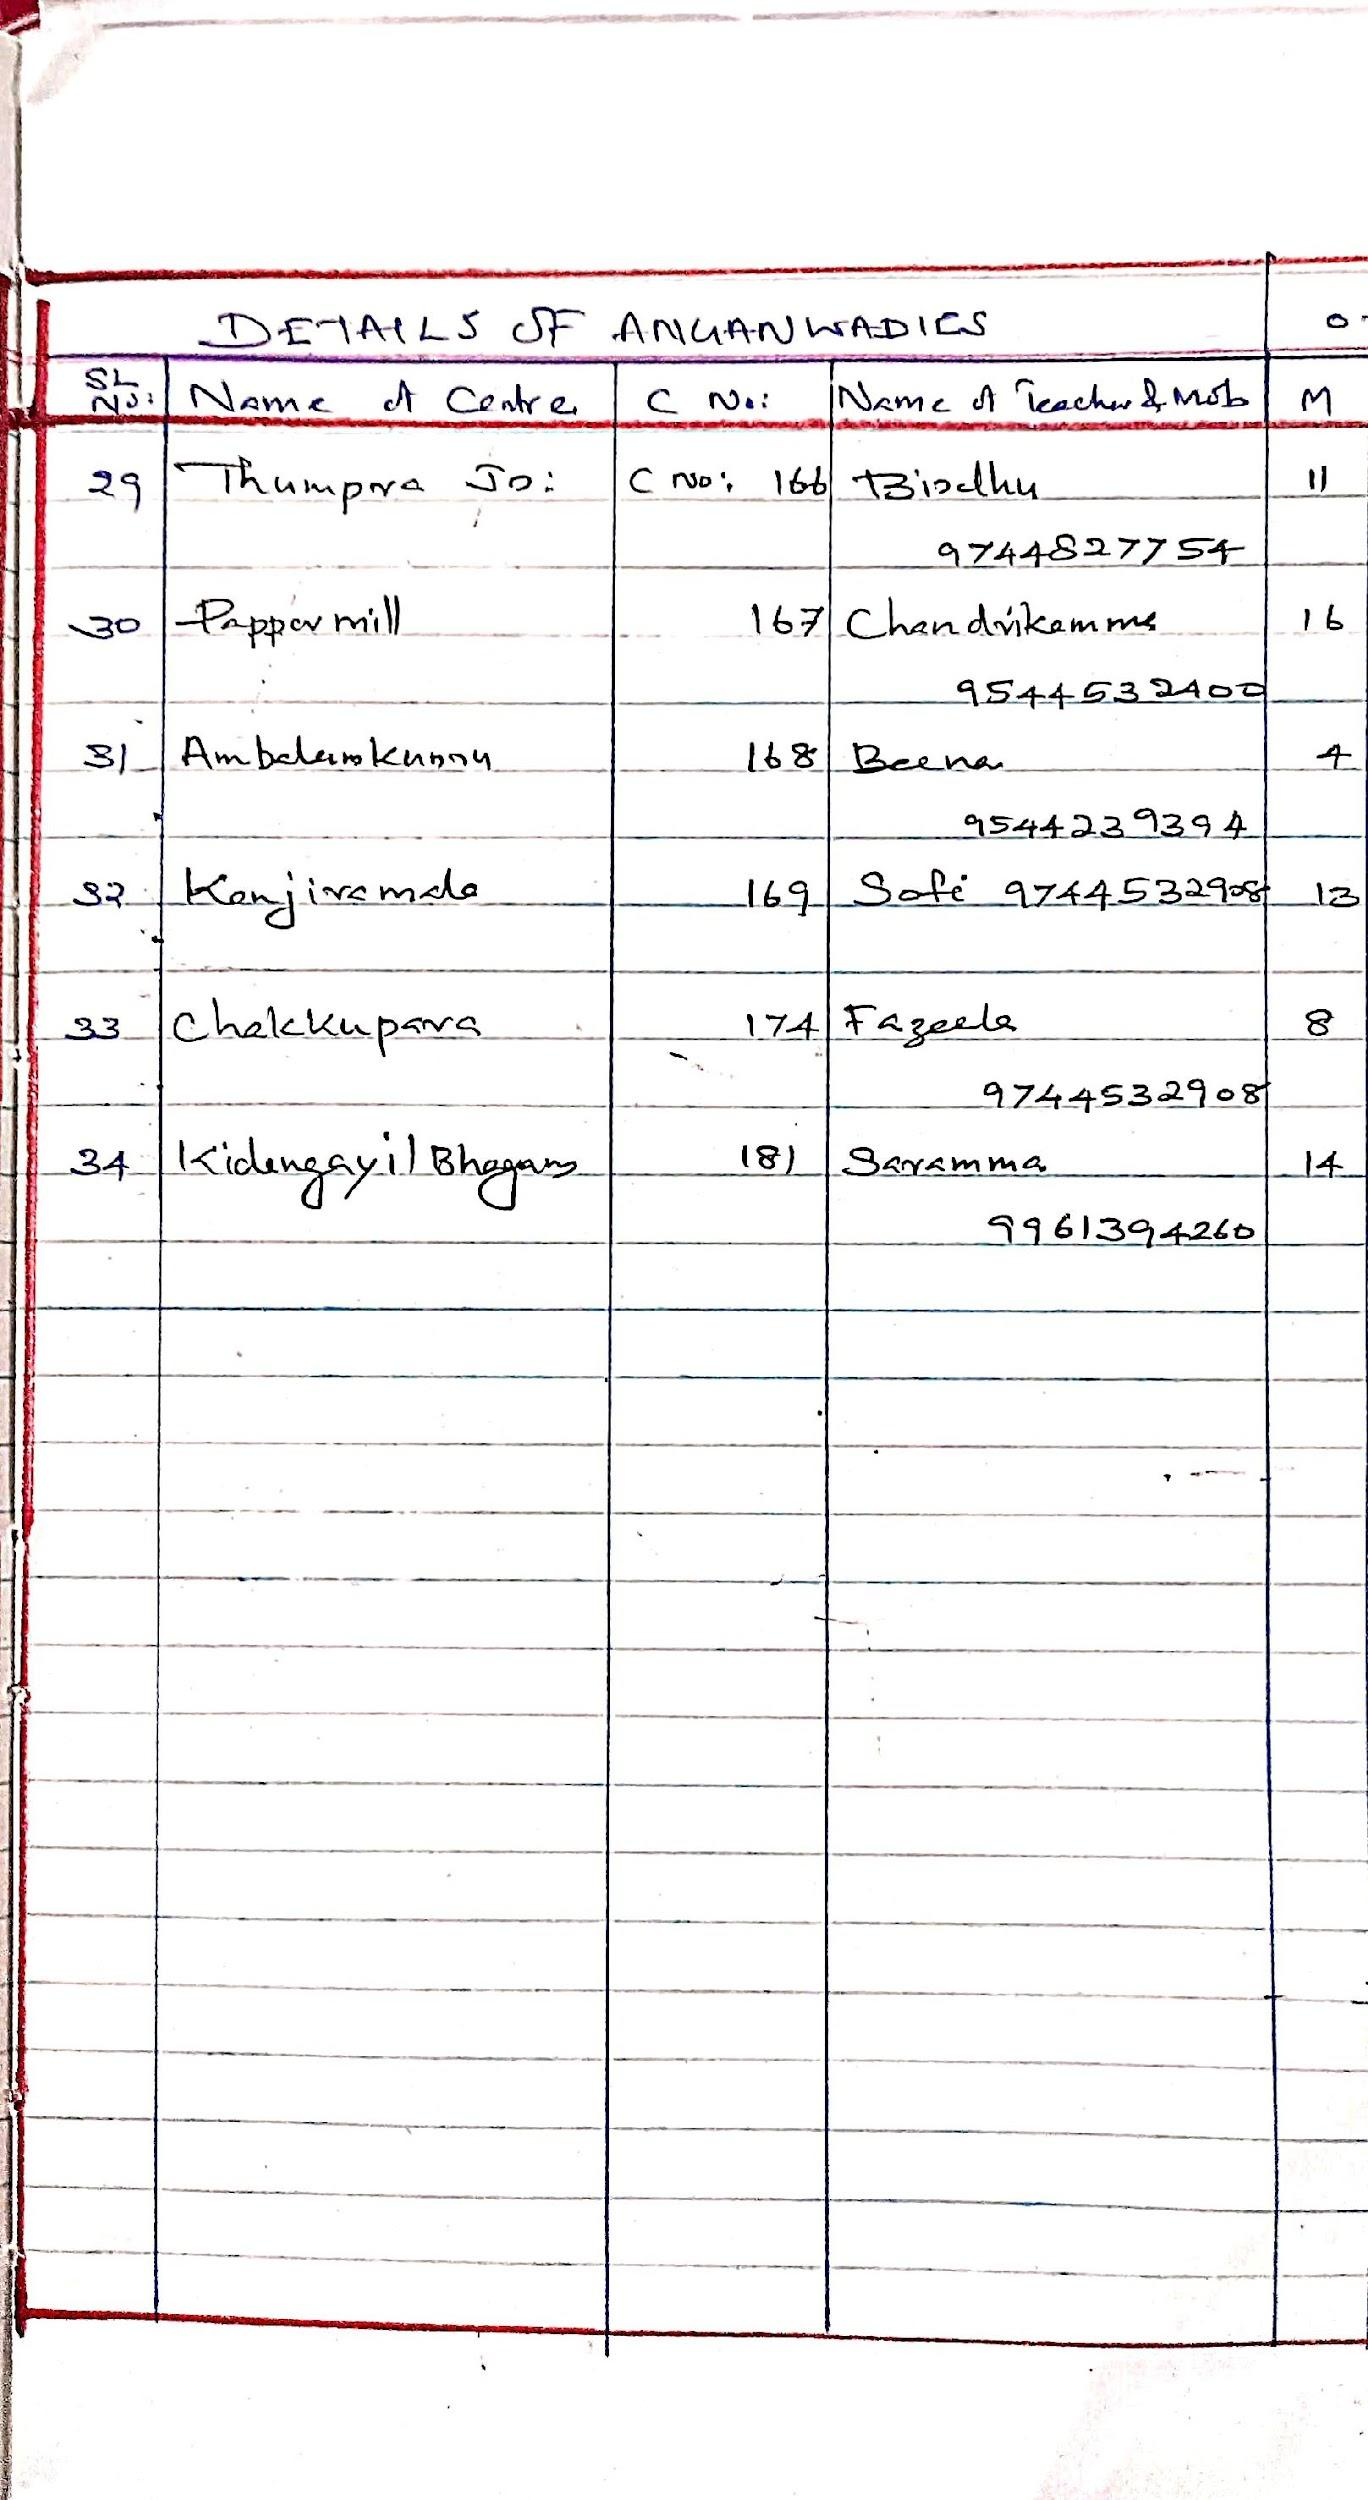 DETAILS OF ANGANWADIES 0-
SL NO: Name of Centre C No: Name of Teacher & Mob M
29 Thumpora Jn: C No: 166 Bindhu 11
9744827754
30 Pappor mill 167 Chandrikamma 16
9544532400
31 Ambalamkunnu 168 Beena 4
9544239394
32 Kanjiramala 169 Sofi 9744532908 13
33 Chakkupara 174 Fazeela 8
9744532908
34 Kidangayil Bhagam 181 Saramma 14
9961394260